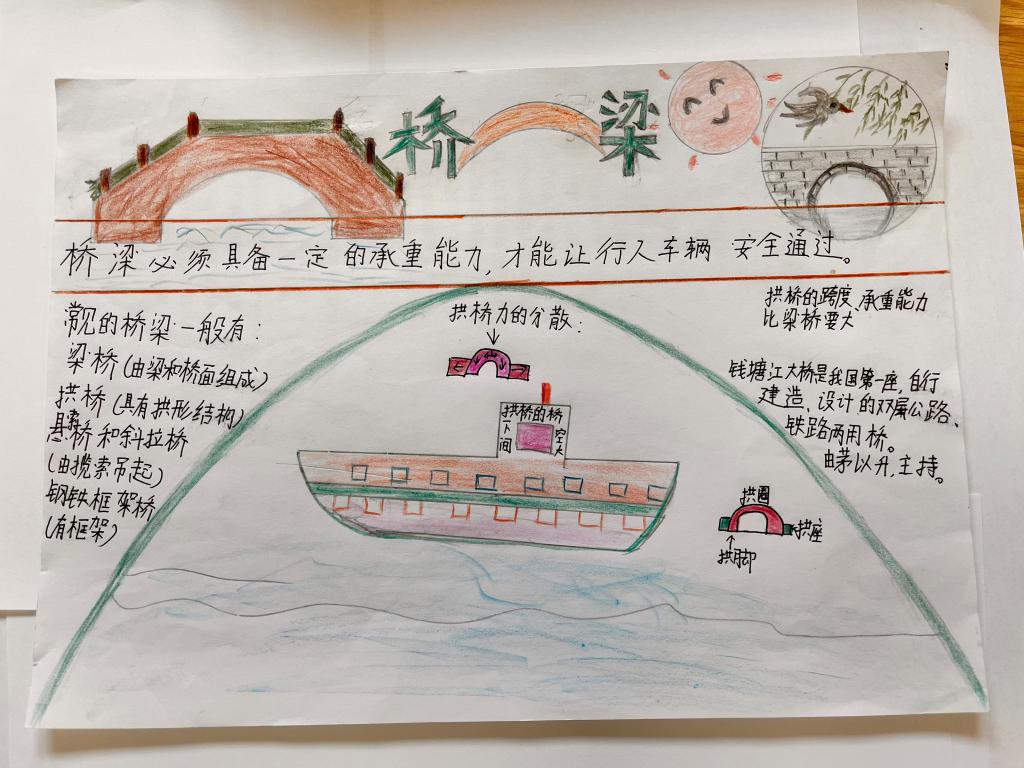 桥梁
桥梁必须具备一定的承重能力,才能让行人车辆 安全通过。
常见的桥梁一般有:
梁桥(由梁和桥面组成)
拱桥(具有拱形结构)
悬索桥和斜拉桥
(由揽索吊起)
钢铁框架桥
(有框架)
拱桥力的分散:
拱桥的桥
下空
间大
拱桥的跨度、承重能力
比梁桥要大
钱塘江大桥是我国第一座,自行
建造、设计的双层公路、
铁路两用桥。
由茅以升,主持。
拱圈
拱座
拱脚